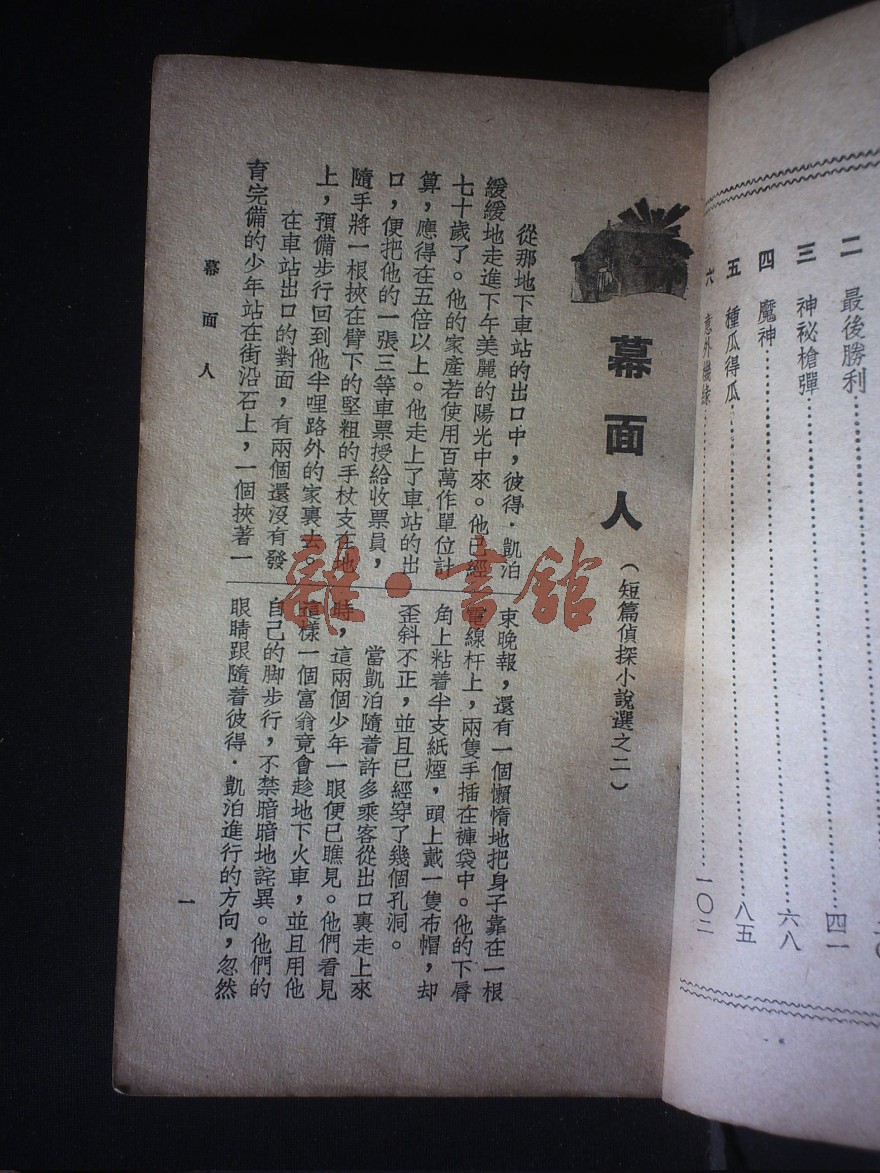 二 最後勝利 四二
三 神祕槍彈 六八
四 魔神
五 種瓜得瓜 八五
六 意外機緣 一〇二
幕面人
(短篇偵探小說選之二)
從那地下車站的出口中，彼得·凱泊
緩緩地走進下午美麗的陽光中來。他已經
七十歲了。他的家產若使用百萬作單位計
算，應得在五倍以上。他走上了車站的出
口，便把他的一張三等車票授給收票員，
隨手將一根挾在臂下的堅粗的手杖支在地
上，預備步行回到他半哩路外的家裏去。
在車站出口的對面，有兩個還沒有發
育完備的少年站在街沿石上，一個挾著一
束晚報，還有一個懶惰地把身子靠在一根
電線杆上，兩隻手插在褲袋中。他的下脣
角上粘着半支紙煙，頭上戴一隻布帽，却
歪斜不正，並且已經穿了幾個孔洞。
當凱泊隨着許多乘客從出口裏走上來
時，這兩個少年一眼便已瞧見。他們看見
這樣一個富翁竟會趁地下火車，並且用他
自己的脚步行，不禁暗暗地詫異。他們的
眼睛跟隨着彼得·凱泊進行的方向，忽然
幕面人
一
雜·書館